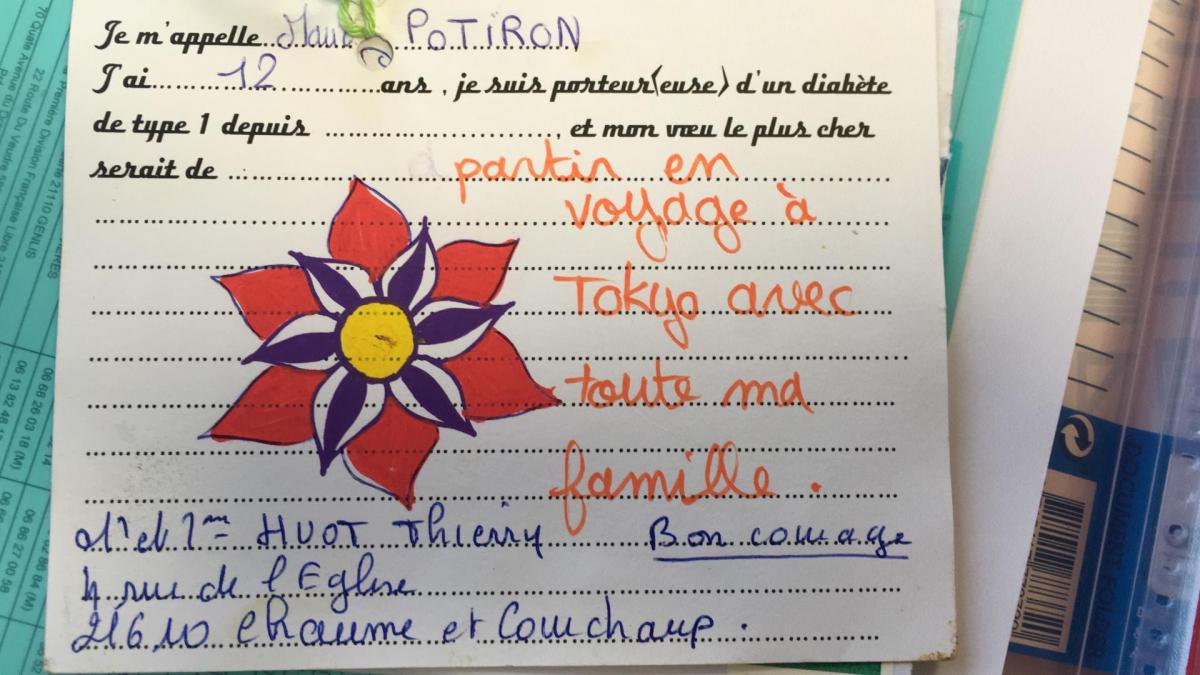 Je m'appelle POTIRON
J'ai 12 ans, je suis porteur(euse) d'un diabète
de type 1 depuis ............................, et mon vœu le plus cher
serait de partir en
voyage à
Tokyo avec
toute ma
famille.
HUOT Thierry Bon courage
4 rue de l'Eglise
21610 Chaume et Courchamp.
70 Quate Avenue du
22 Route Du Veudre
Première Division Française Libre
21110 GENLIS
06 68 26 03 18 (M)
06 13 82 48
06 86 27 00 58
DOCUMENT FOLDER